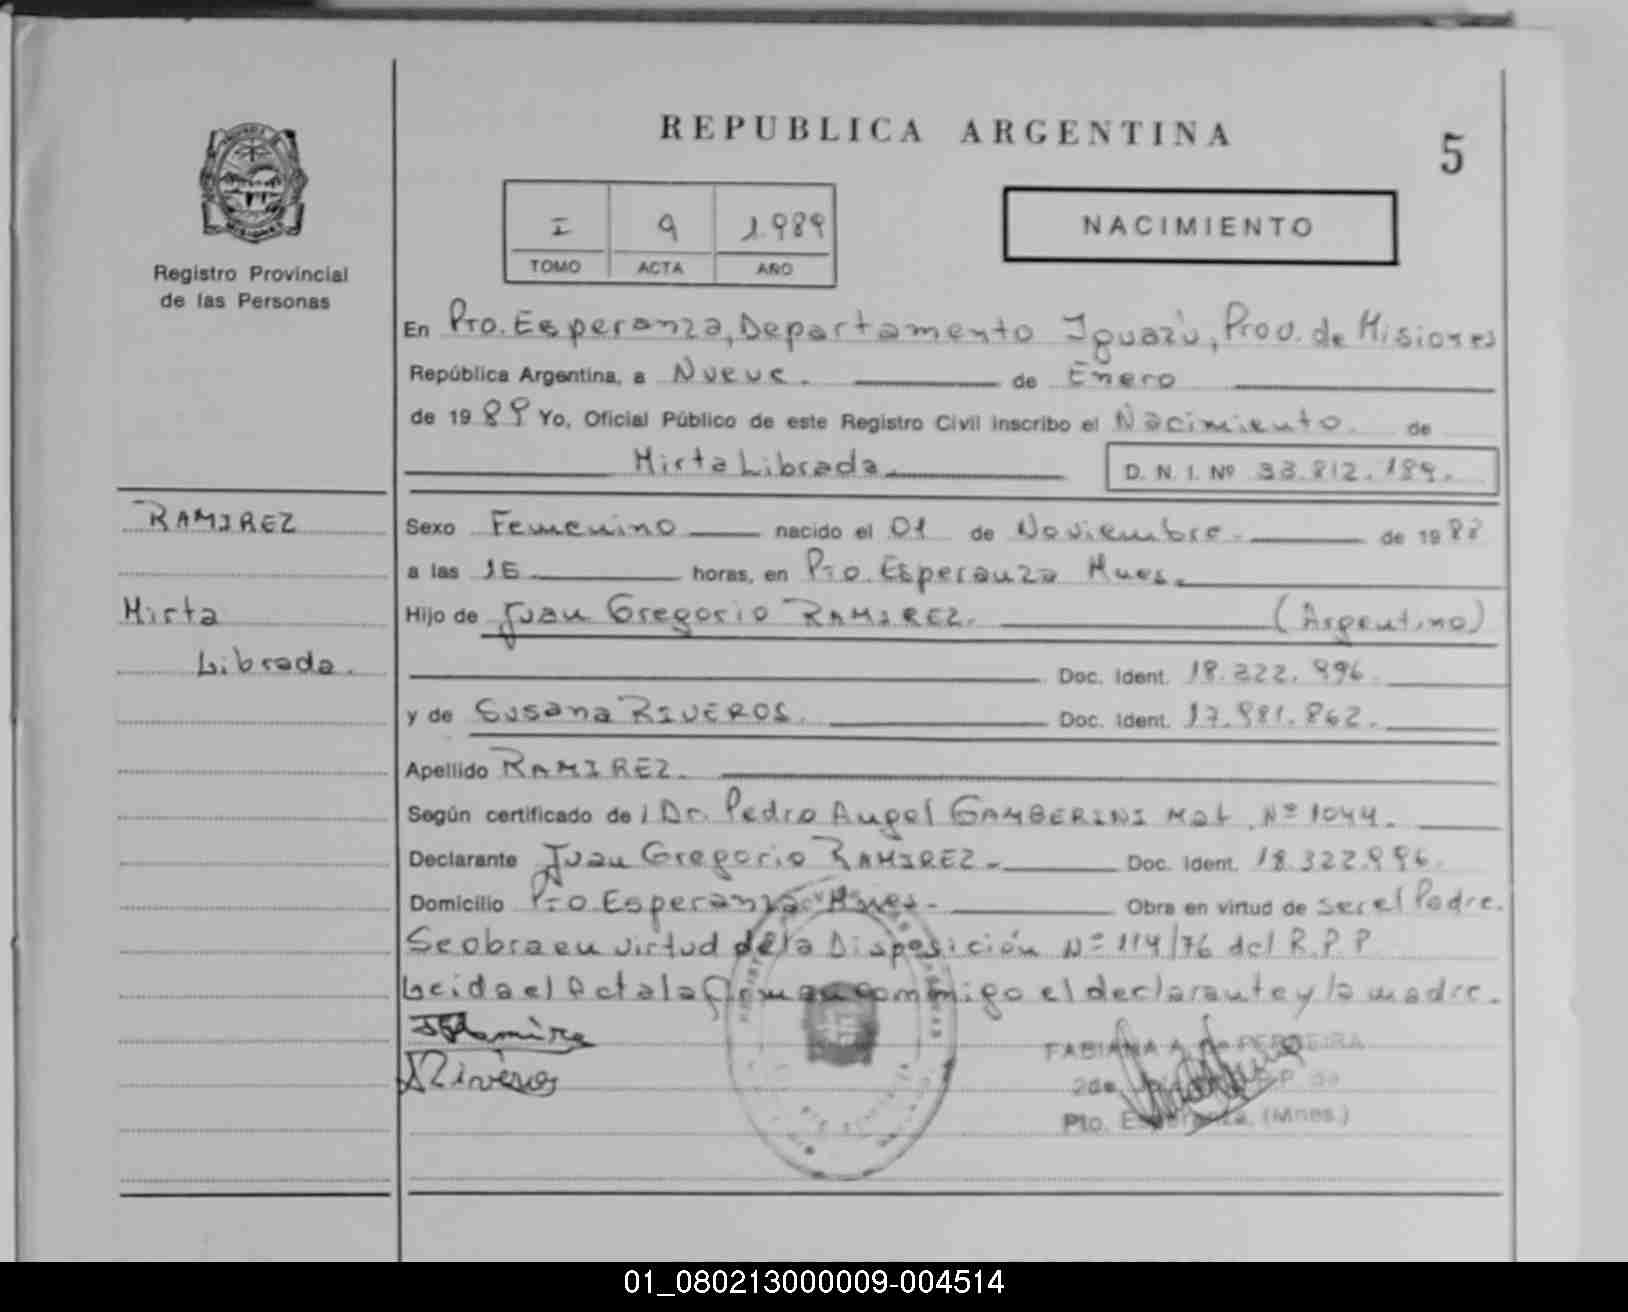 REPUBLICA ARGENTINA
5
I 9 1.989
TOMO ACTA AÑO
NACIMIENTO
Registro Provincial
de las Personas
En Pto. Esperanza, Departamento Iguazú, Prov. de Misiones
República Argentina, a Nueve. de Enero
de 1989 Yo, Oficial Público de este Registro Civil inscribo el Nacimiento. de
Mirta Librada. D. N. I. Nº 33.812.189.
RAMIREZ
Mirta
Librada.
Sexo Femenino nacido el 01 de Noviembre. de 1988
a las 15 horas, en Pto. Esperanza Mnes.
Hijo de Juan Gregorio RAMIREZ. (Argentino)
Doc. Ident. 18.322.996.
y de Susana RIVEROS. Doc. Ident. 17.981.862.
Apellido RAMIREZ.
Según certificado de Dr. Pedro Angel GAMBERINI Mat. Nº 1044.
Declarante Juan Gregorio RAMIREZ. Doc. Ident. 18.322.996.
Domicilio Pto. Esperanza Mnes. Obra en virtud de ser el Padre.
Se obra en virtud de la Disposición Nº 114/76 del R.P.P
Leida el Acta la firman conmigo el declarante y la madre.
Riveros
FABIANA A. de FERREIRA
Pto. Esperanza, (Mnes.)
01_080213000009-004514